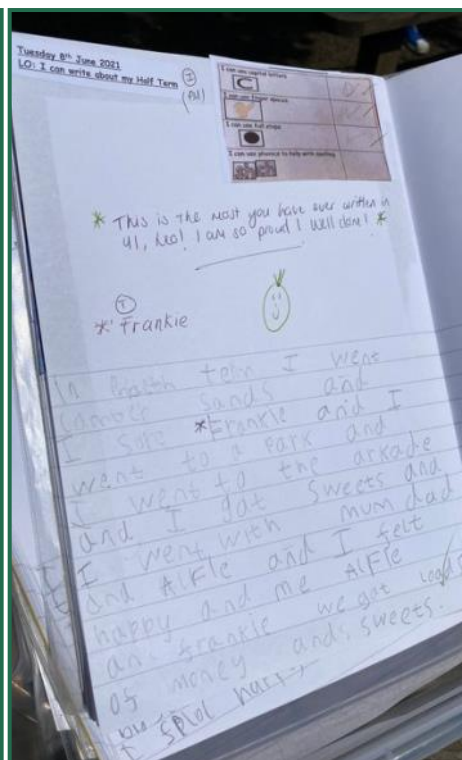 Tuesday 8th June 2021
LO: I can write about my Half Term
I can use capital letters
I can use finger spaces
I can use full stops
I can use phonics to help with spelling
* This is the most you have ever written in
Y1, Leo! I am so proud! Well done! *
* Frankie
In term I went
camber sands and
I sore *Frankie and I
went to a park and
I went to the arkade
and I got sweets and
I went with mum dad
and Alfie and I felt
happy and me Alfie
an frankie we got
of money and sweets.